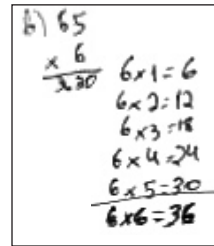 b) 65
× 6
3630
6×1=6
6×2=12
6×3=18
6×4=24
6×5=30
6×6=36